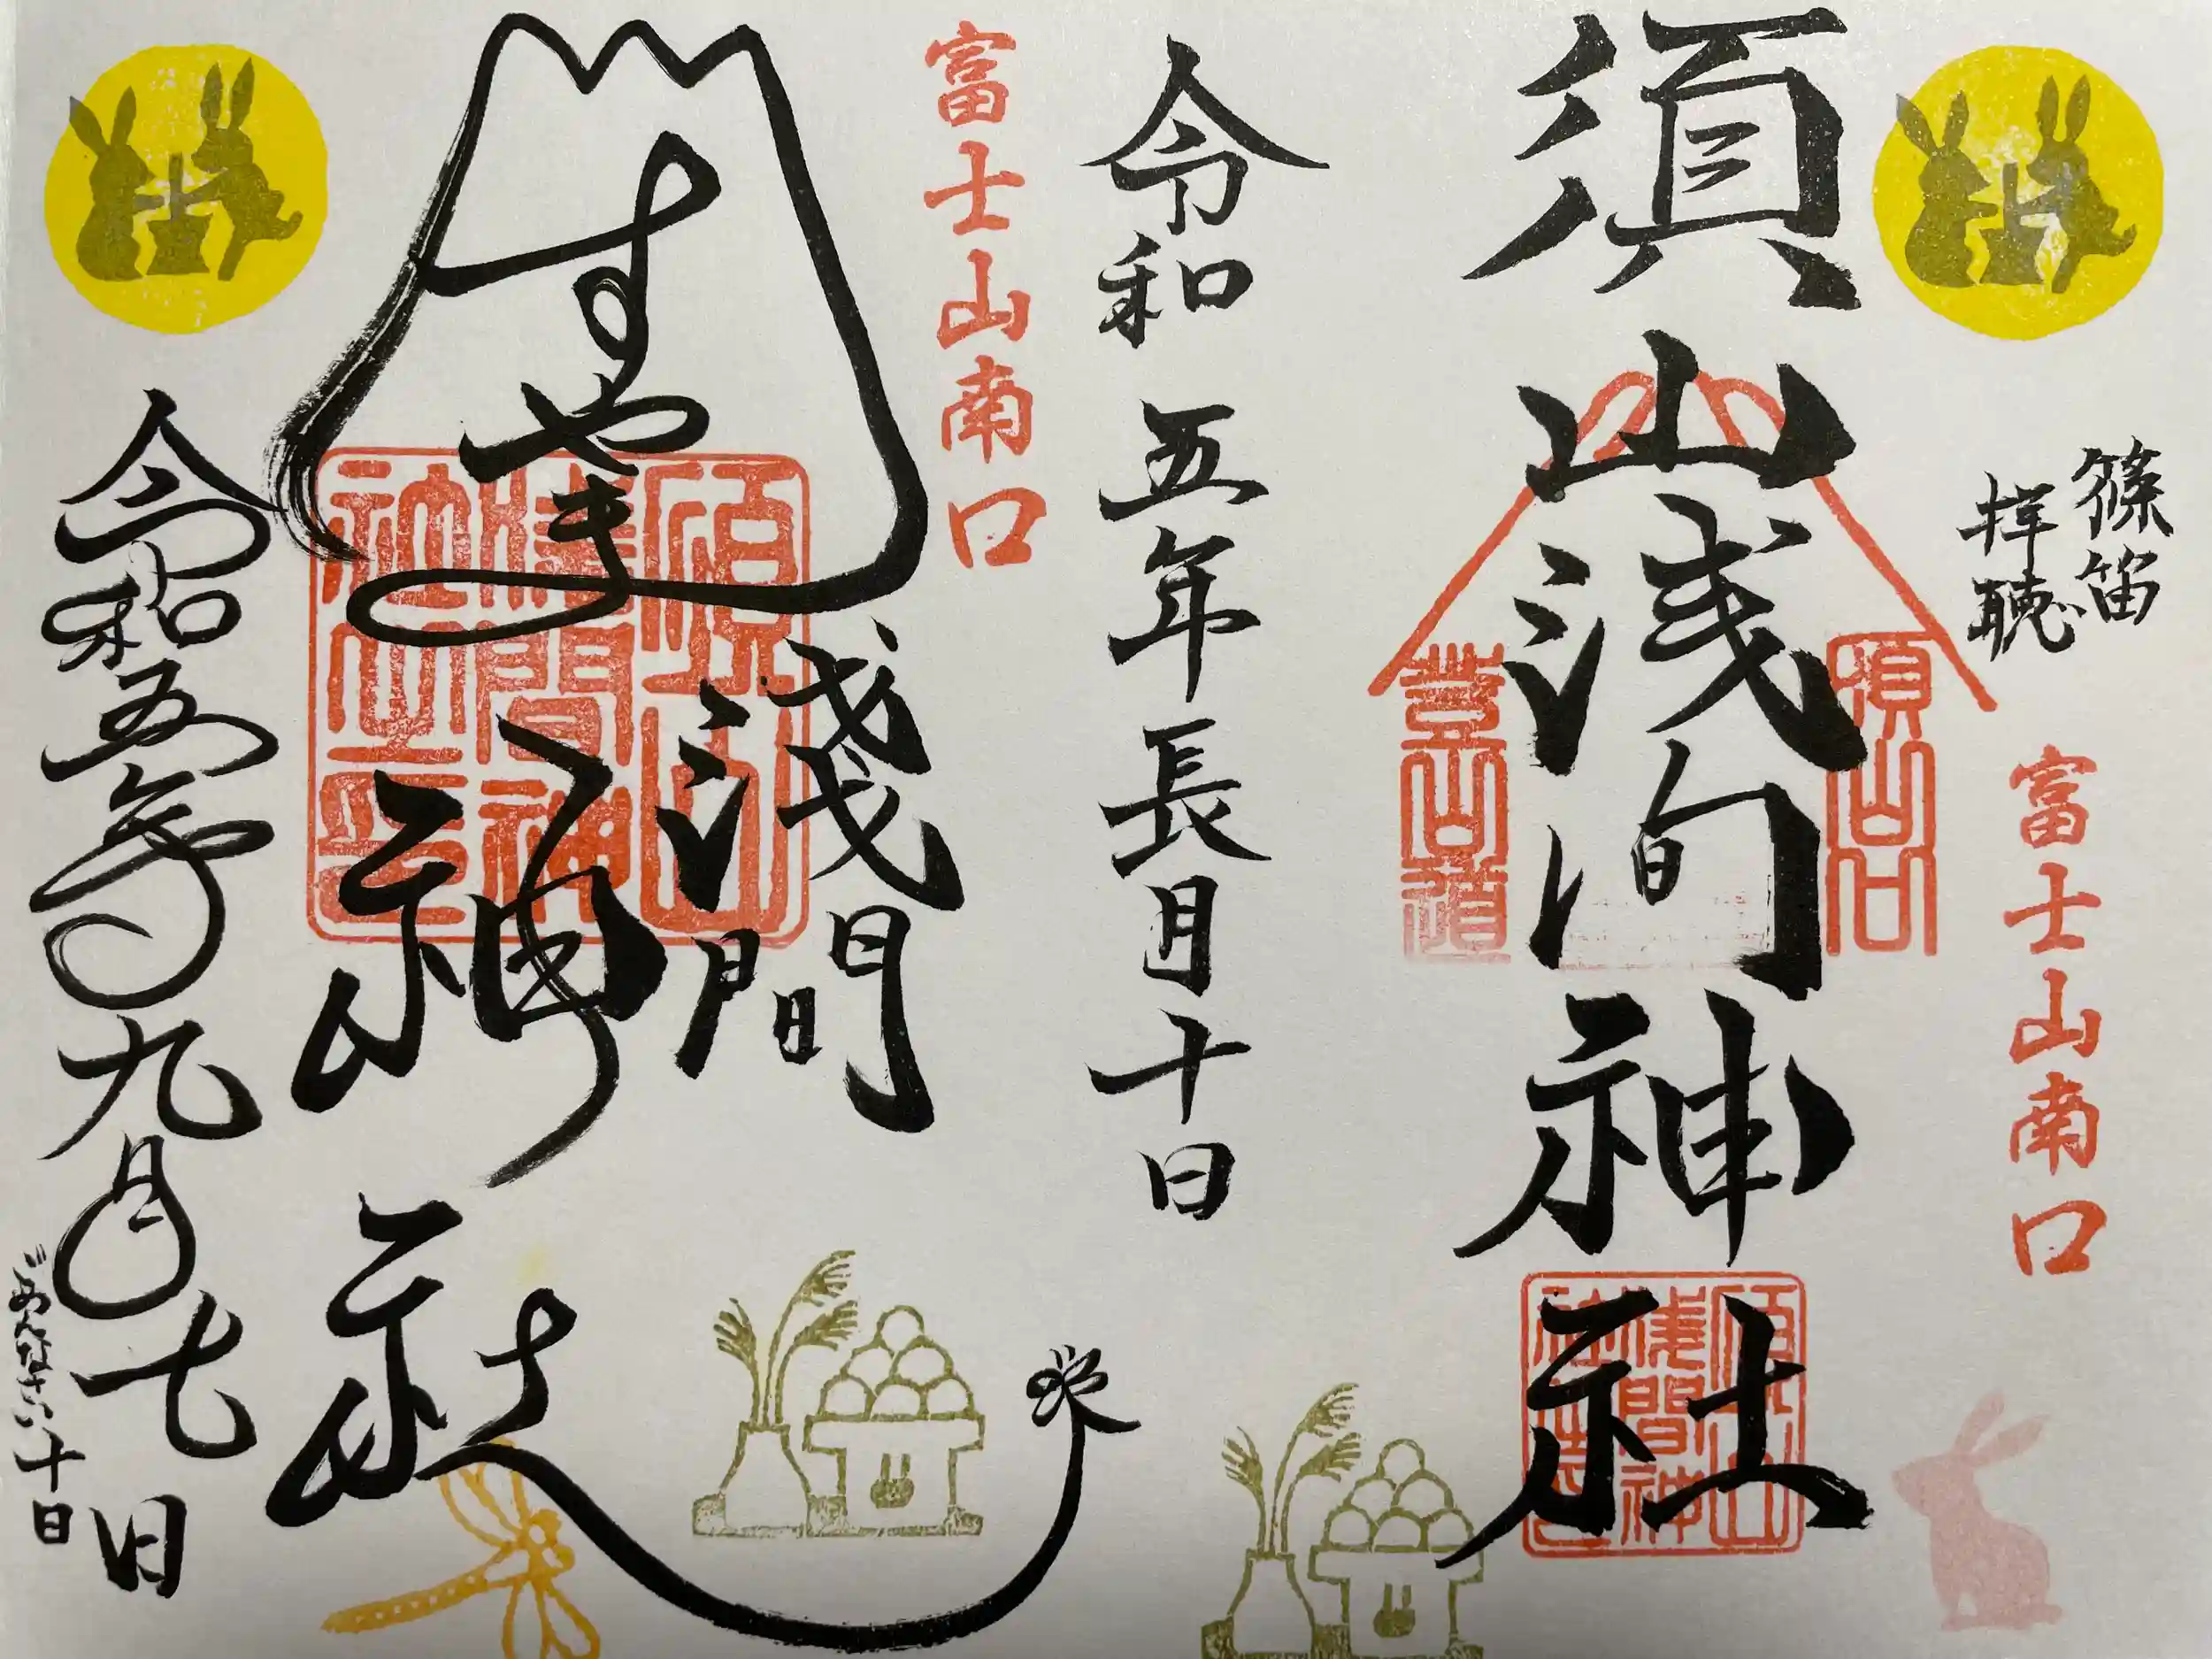 富士山南口
篠笛
拝聴
須山浅間神社
須山
登山道
須山
浅間神
社之印
令和五年長月十日
富士山南口
すやま
淺間
神社
須山
浅間神
社之印
令和五年九月七日
ごめんなさい十日